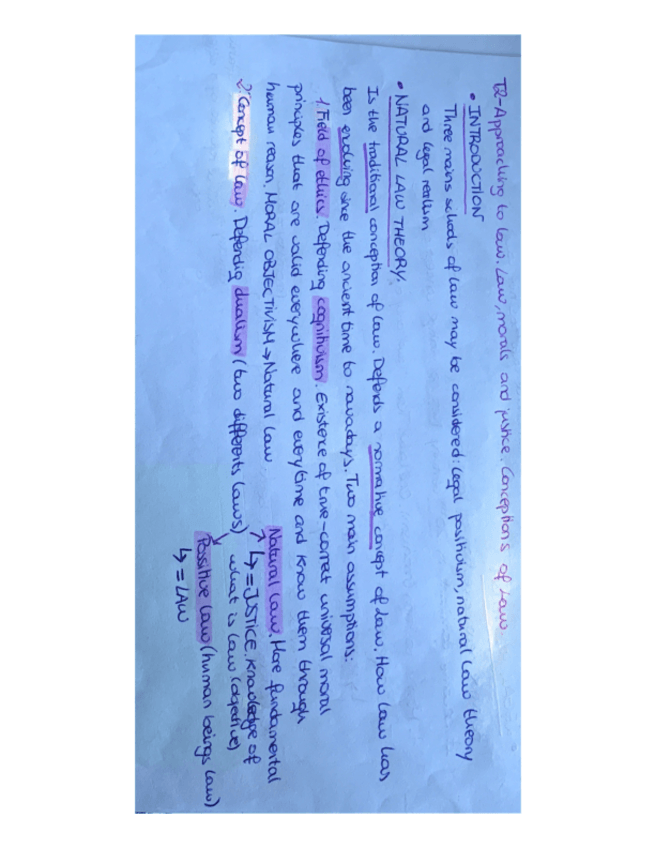 T2-Approaching to law. Law, morals and justice. Conceptions of Law
• INTRODUCTION
Three mains schools of law may be considered: legal positivism, natural law theory
and legal realism
• NATURAL LAW THEORY.
Is the traditional conception of law. Defends a normative concept of law. How law has
been evolving since the ancient time to nowadays. Two main assumptions:
1. Field of ethics. Defending cognitivism. Existence of true-correct universal moral
principles that are valid everywhere and everytime and know them through
human reason. MORAL OBJECTIVISM → Natural law
2. Concept of law. Defending dualism (two differents laws)
Natural law. More fundamental
↳ = JUSTICE. Knowledge of
what is law (objective)
Possitive law (human beings law)
↳ = LAW